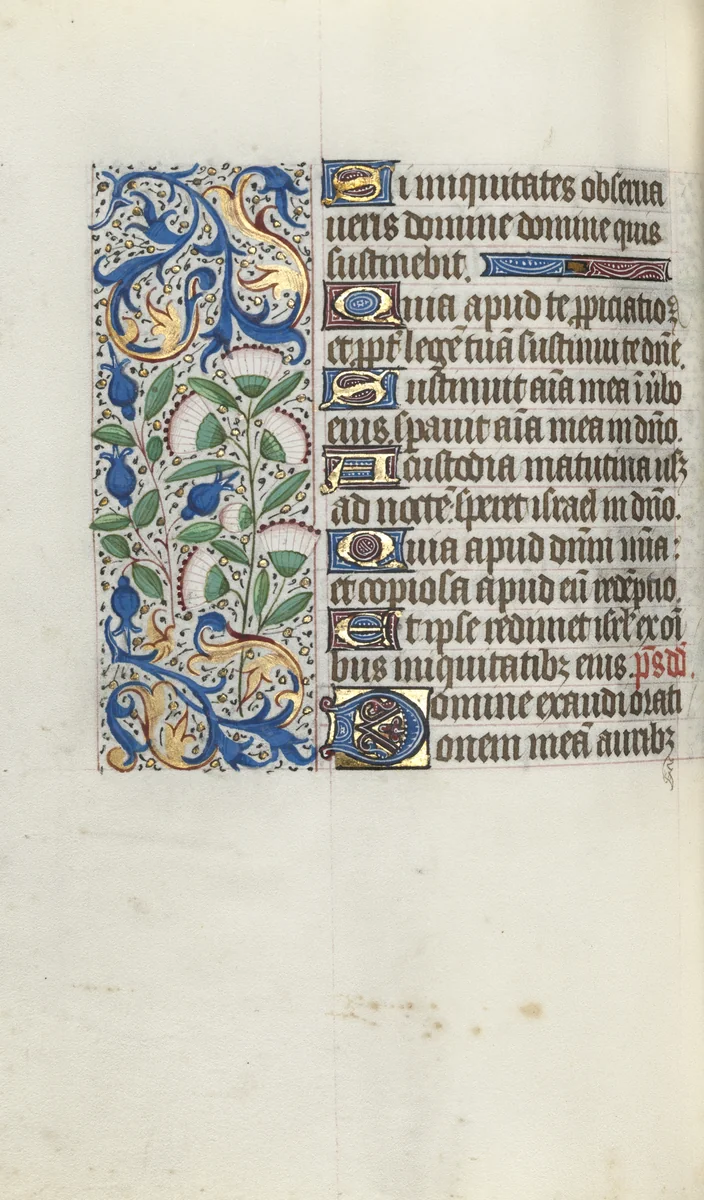 Si iniquitates observa
veris domine domine quis
sustinebit.
Quia apud te ꝓpiciatio ē
et ꝓpt̄ legē tuā sustinui te dn̄e.
Sustinuit aīa mea ī v̄bo
eius sꝑavit aīa mea in dn̄o.
A custodia matutina usqꝫ
ad noctē. speret israel in dn̄o.
Quia apud dn̄m mīa:
et copiosa apud eū redēptio.
Et ipse redimet isrl̄ ex oī
bus iniquitatibꝫ eius. p̄s dd̄.
Domine exaudi orati
onem meā auribꝫ